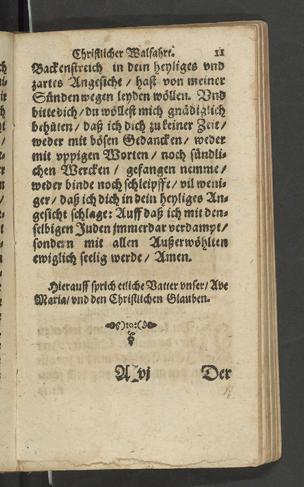 Christlicher Walfahrt. 11
Backenstreich in dein heyliges vnd
zartes Angesicht / hast von meiner
Sünden wegen leyden wöllen. Vnd
bitte dich / du wöllest mich gnädiglich
behüten / daß ich dich zu keiner Zeit /
weder mit bösen Gedancken / weder
mit vppigen Worten / noch sündli-
chen Wercken / gefangen nemme /
weder binde noch schleipffe / vil weni-
ger / daß ich dich in dein heyliges An-
gesicht schlage: Auff daß ich mit den-
selbigen Juden immerdar verdampt /
sondern mit allen Außerwöhlten
ewiglich seelig werde / Amen.
Hierauff sprich etliche Vatter vnser / Ave
Maria / vnd den Christlichen Glauben.
A vi Der